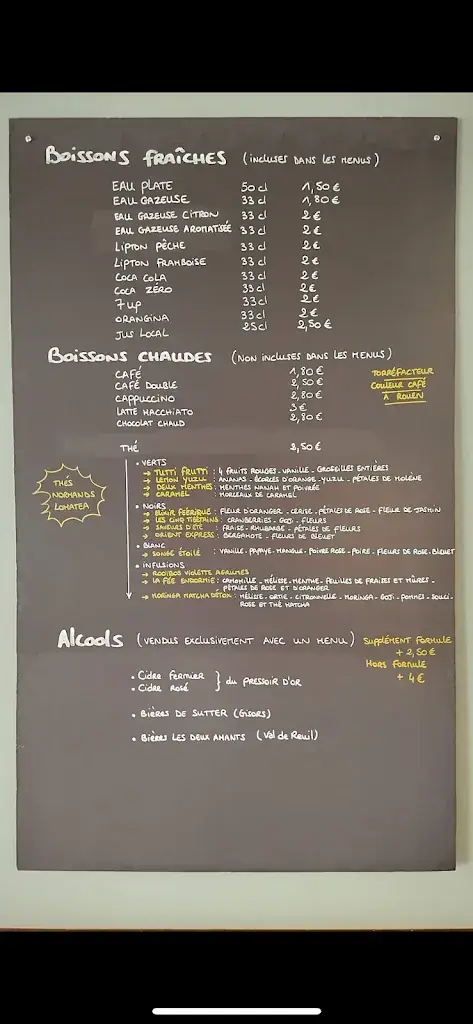 BOISSONS FRAÎCHES (INCLUSES DANS LES MENUS)
EAU PLATE 50 cl 1,50 €
EAU GAZEUSE 33 cl 1,80 €
EAU GAZEUSE CITRON 33 cl 2 €
EAU GAZEUSE AROMATISÉE 33 cl 2 €
LIPTON PÊCHE 33 cl 2 €
LIPTON FRAMBOISE 33 cl 2 €
COCA COLA 33 cl 2 €
COCA ZÉRO 33 cl 2 €
7 UP 33 cl 2 €
ORANGINA 33 cl 2 €
JUS LOCAL 25 cl 2,50 €
BOISSONS CHAUDES (NON INCLUSES DANS LES MENUS)
CAFÉ 1,80 €
CAFÉ DOUBLE 2,50 €
CAPPUCCINO 2,80 €
LATTE MACCHIATO 3 €
CHOCOLAT CHAUD 2,80 €
TORRÉFACTEUR
COULEUR CAFÉ
À ROUEN
THÉ 2,50 €
THÉS
NORMANDS
LOMATEA
• VERTS
→ TUTTI FRUTTI : 4 FRUITS ROUGES - VANILLE - GROSEILLES ENTIÈRES
→ LEMON YUZU : ANANAS - ÉCORCES D'ORANGE - YUZU - PÉTALES DE MOLÈNE
→ DEUX MENTHES : MENTHES NANAH ET POIVRÉE
→ CARAMEL : MORCEAUX DE CARAMEL
• NOIRS
→ ELIXIR FÉÉRIQUE : FLEUR D'ORANGER - CERISE - PÉTALES DE ROSE - FLEUR DE JASMIN
→ LES CINQ TIBÉTAINS : CRANBERRIES - GOJI - FLEURS
→ SAVEURS D'ÉTÉ : FRAISE - RHUBARBE - PÉTALES DE FLEURS
→ ORIENT EXPRESS : BERGAMOTE - FLEURS DE BLEUET
• BLANC
→ SONGE ÉTOILÉ : VANILLE - PAPAYE - MANGUE - POIVRE ROSE - POIRE - FLEURS DE ROSE - BLEUET
• INFUSIONS
→ ROOIBOS VIOLETTE AGRUMES
→ LA FÉE ENDORMIE : CAMOMILLE - MÉLISSE - MENTHE - FEUILLES DE FRAISES ET MÛRES -
PÉTALES DE ROSE ET D'ORANGER
→ MORINGA MATCHA DÉTOX : MÉLISSE - ORTIE - CITRONNELLE - MORINGA - GOJI - POMMES - SOUCI -
ROSE ET THÉ MATCHA
ALCOOLS (VENDUS EXCLUSIVEMENT AVEC UN MENU)
SUPPLÉMENT FORMULE
+ 2,50 €
HORS FORMULE
+ 4 €
• CIDRE FERMIER
• CIDRE ROSÉ } DU PRESSOIR D'OR
• BIÈRES DE SUTTER (Gisors)
• BIÈRES LES DEUX AMANTS (Val de Reuil)